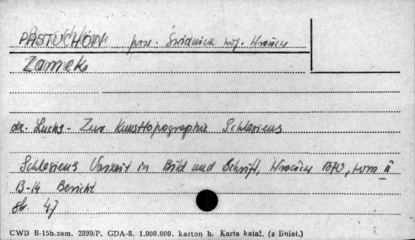 PASTUCHÓW pow. Świdnica woj. Wrocław
Zamek
dr. Luchs - Zur Kunsttopographie Schlesiens
Schlesiens Vorzeit in Bild und Schrift, Wrocław 1870, tom II
13-14 Bericht
str. 47
CWD B-15b.zam. 2899/P. GDA-8. 1.000.000. karton b. Karta katal. (z liniat.)